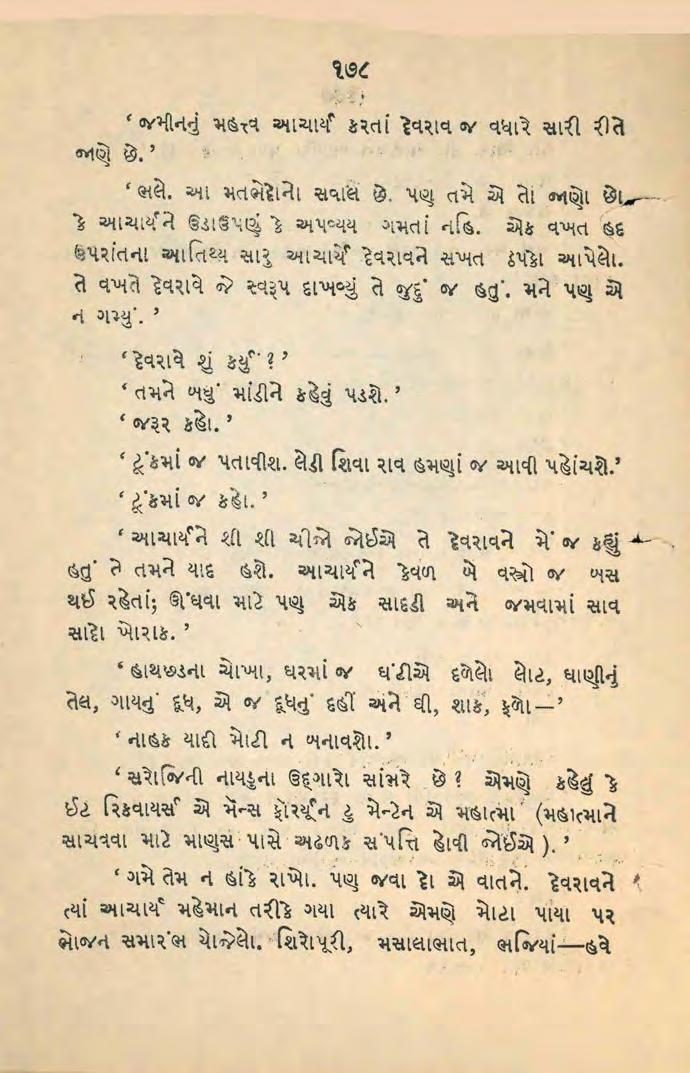 ૧૭૮
‘જમીનનું મહત્ત્વ આચાર્ય કરતાં દેવરાવ જ વધારે સારી રીતે
જાણે છે.’
‘ભલે. આ મતભેદોનો સવાલ છે. પણ તમે એ તો જાણો છો
કે આચાર્યને ઉડાઉપણું કે અપવ્યય ગમતાં નહિ. એક વખત હદ
ઉપરાંતના આતિથ્ય સારુ આચાર્યે દેવરાવને સખત ઠપકો આપેલો.
તે વખતે દેવરાવે જે સ્વરૂપ દાખવ્યું તે જુદું જ હતું. મને પણ એ
ન ગમ્યું.’
‘દેવરાવે શું કર્યું?’
‘તમને બધું માંડીને કહેવું પડશે.’
‘જરૂર કહો.’
‘ટૂંકમાં જ પતાવીશ. લેડી શિવા રાવ હમણાં જ આવી પહોંચશે.’
‘ટૂંકમાં જ કહો.’
‘આચાર્યને શી શી ચીજો જોઈએ તે દેવરાવને મેં જ કહ્યું
હતું તે તમને યાદ હશે. આચાર્યને કેવળ બે વસ્ત્રો જ બસ
થઈ રહેતાં; ઊંઘવા માટે પણ એક સાદડી અને જમવામાં સાવ
સાદો ખોરાક.’
‘હાથછડના ચોખા, ઘરમાં જ ઘંટીએ દળેલો લોટ, ઘાણીનું
તેલ, ગાયનું દૂધ, એ જ દૂધનું દહીં અને ઘી, શાક, ફળો—’
‘નાહક યાદી મોટી ન બનાવશો.’
‘સરોજિની નાયડુના ઉદ્‌ગારો સાંભરે છે? એમણે કહેલું કે
ઈટ રિકવાયર્સ એ મૅન્સ ફૉરર્ચ્યૂન ટુ મેન્ટેન એ મહાત્મા (મહાત્માને
સાચવવા માટે માણસ પાસે અઢળક સંપત્તિ હોવી જોઈએ).’
‘ગમે તેમ ન હાંકે રાખો. પણ જવા દો એ વાતને. દેવરાવને
ત્યાં આચાર્ય મહેમાન તરીકે ગયા ત્યારે એમણે મોટા પાયા પર
ભોજન સમારંભ યોજેલો. શિરોપૂરી, મસાલાભાત, ભજિયાં—હવે